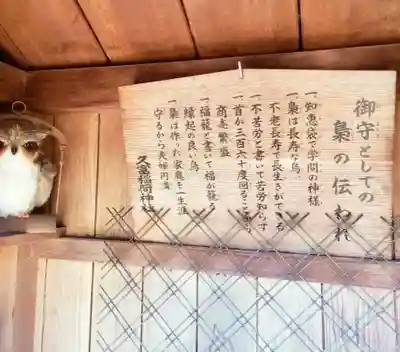 御守としての
梟の伝われ
一、知恵袋で学問の神様
一、梟は長寿な鳥
不老長寿で長生きができる
一、不苦労と書いて苦労知らず
一、首が三百六十度回ることから
商売繁盛
一、福籠と書いて福が籠る
縁起の良い鳥
一、梟は作った家庭を一生涯
守るから夫婦円満
久富稲荷神社